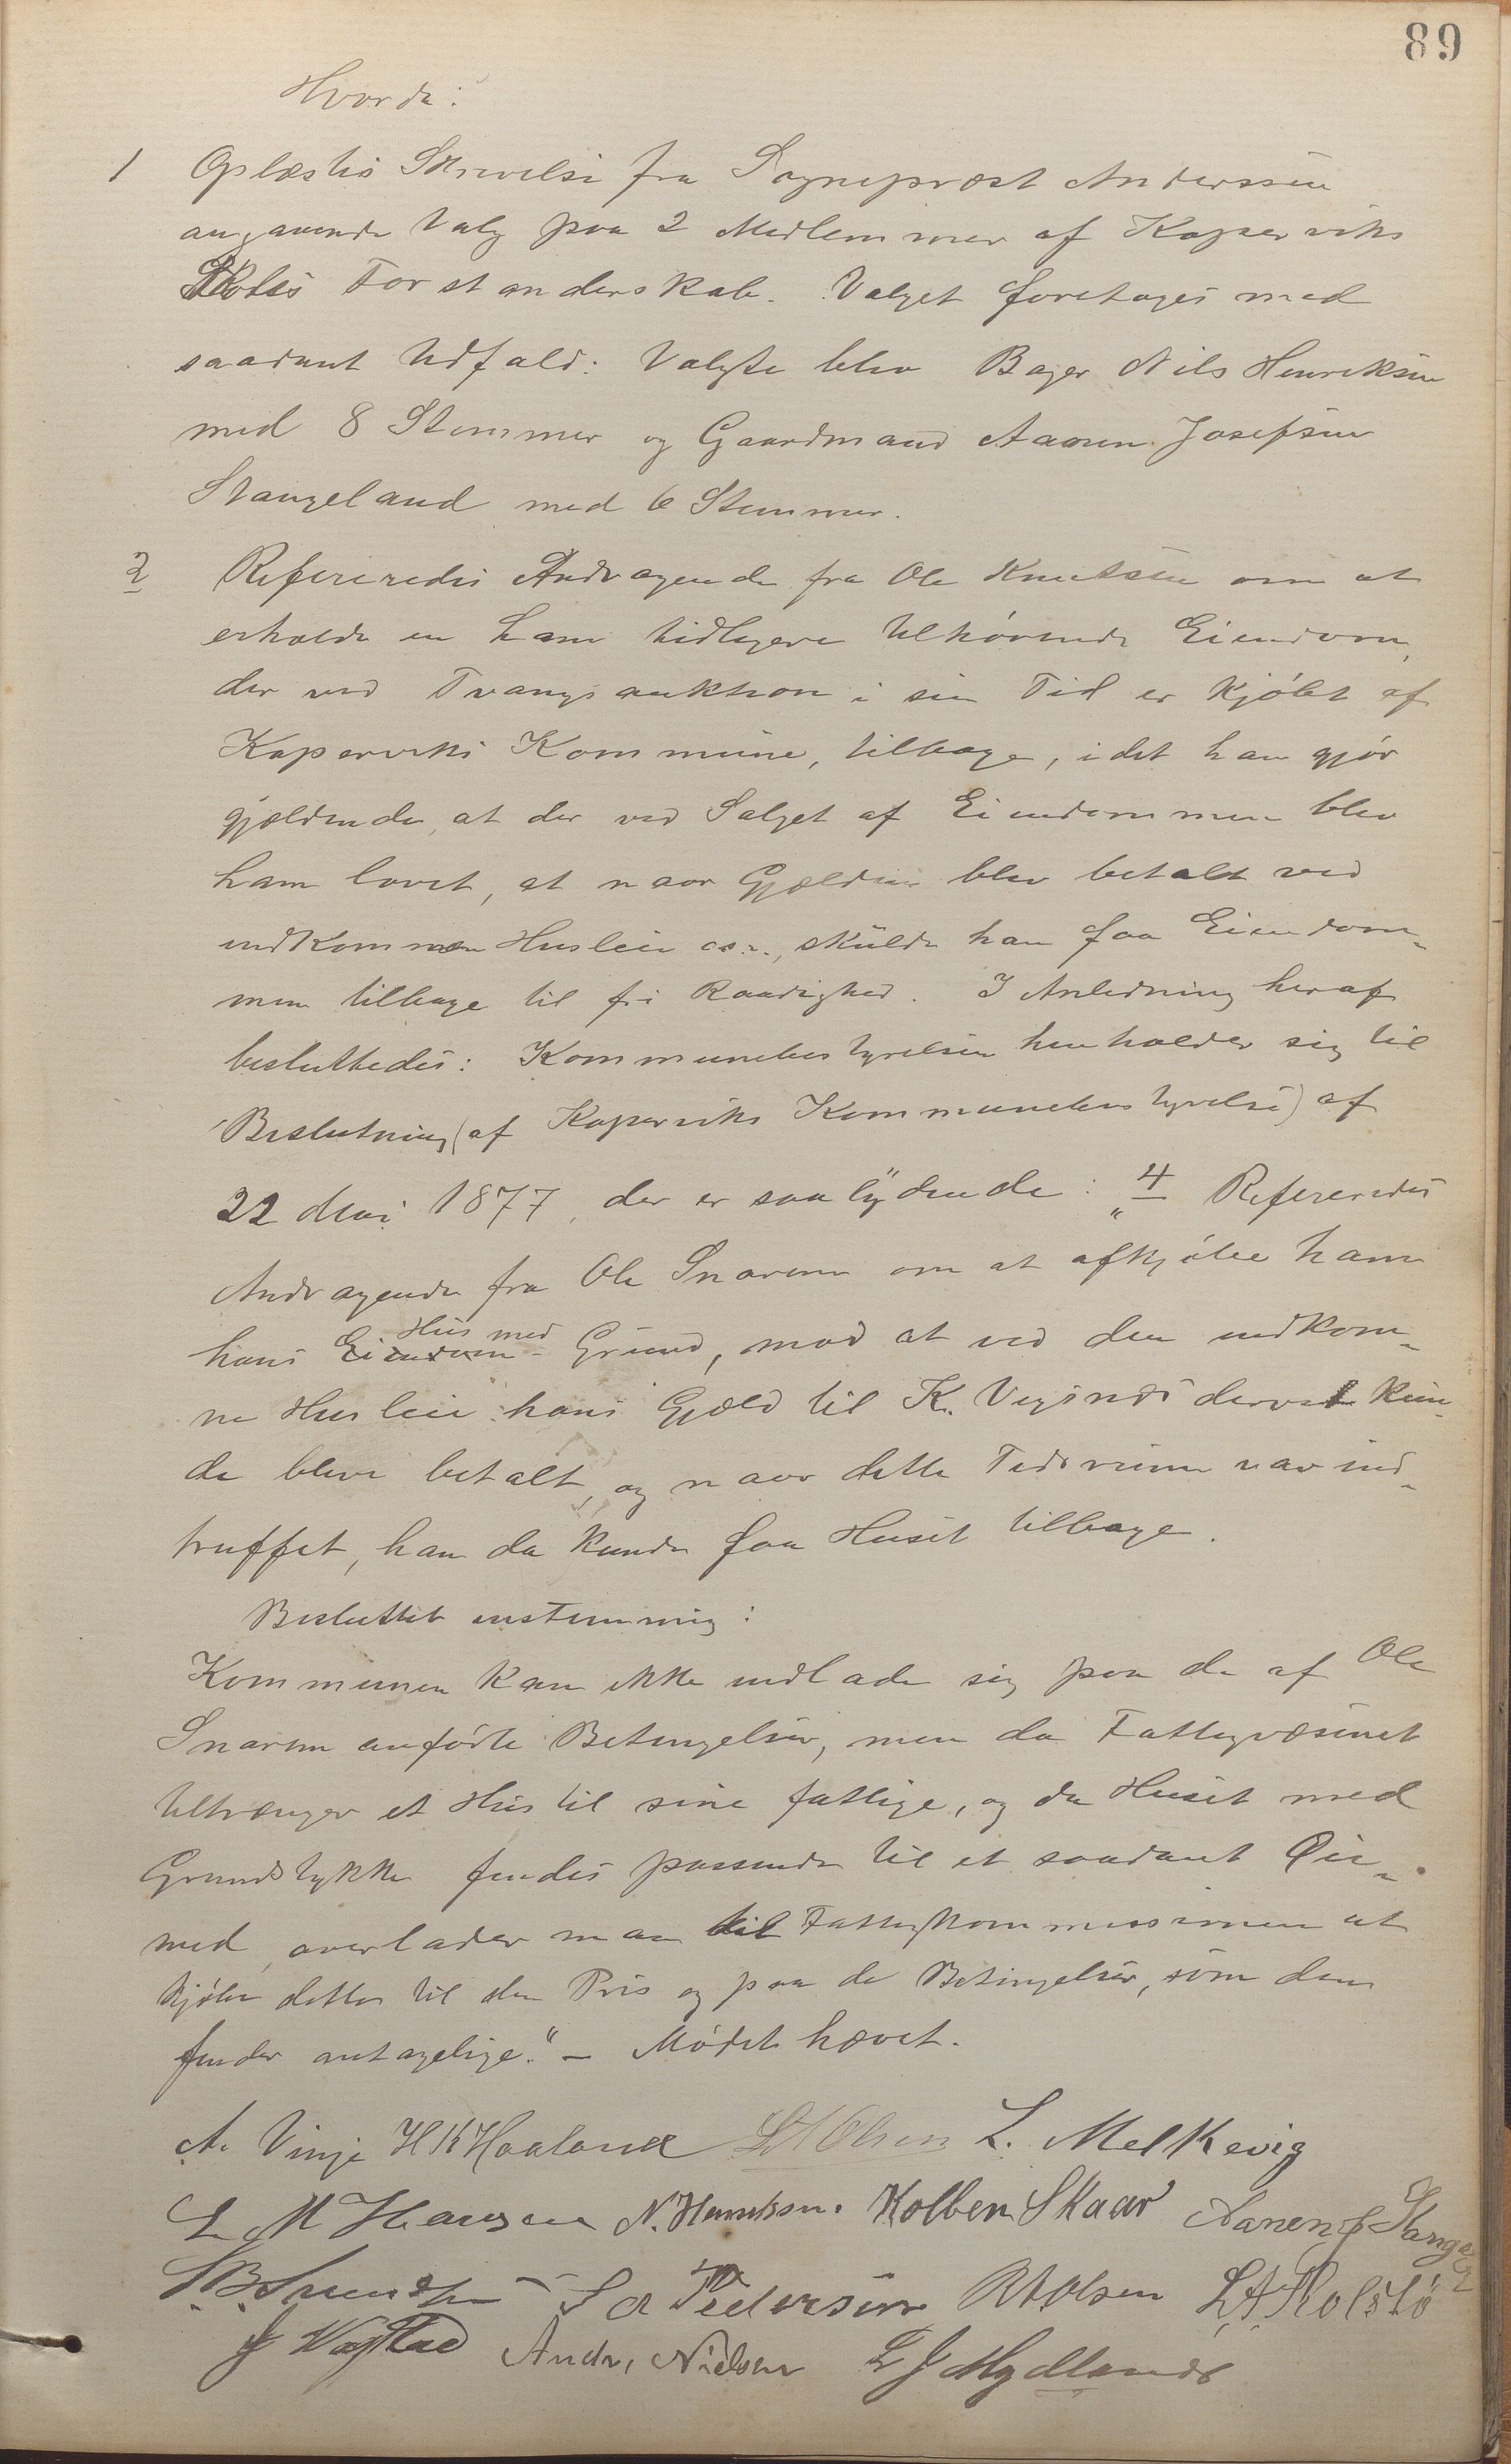 89
Hvorda:
1 Oplæstes Skrivelse fra Sognepræst Anderssen
angaaende Valg paa 2 Medlemmer af Koperviks
Skoles Forstanderskab. Valget foretoges med
saadant Udfald: Valgte blev Bager Nils Henriksen
med 8 Stemmer og Gaardmand Aanen Josefsen
Stangeland med 6 Stemmer.
2 Refereredes Andragende fra Ole Knutsen om at
erholde en ham tidligere tilhørende Eiendom,
der ved Tvangsauktion i sin Tid er kjøbt af
Koperviks Kommune, tilbage, idet han gjør
gjældende, at der ved Salget af Eiendommen blev
ham lovet, at naar Gjælden blev betalt ved
indkommen Husleie os.v., skulde han faa Eiendom-
men tilbage til fri Raadighed. I Anledning heraf
besluttedes: Kommunebestyrelsen henholder sig til
Beslutning (af Koperviks Kommunebestyrelse) af
22 Mai 1877, der er saalydende: "4 Refereredes
Andragende fra Ole Snaren om at afkjøbe ham
hans Hus med Grund, mod at ved den indkom-
ne Husleie hans Gjæld til K. Veisnds derved kun-
de blive betalt, og naar dette Tidsrum var ind-
truffet, han da kunde faa Huset tilbage.
Besluttet enstemmig:
Kommunen kan ikke indlade sig paa de af Ole
Snaren anførte Betingelser, men da Fattigvæsenet
tiltrænger et Hus til sine fattige, og da Huset med
Grundstykke findes passende til et saadant Øie-
med, overlader man til Fattigkommissionen at
kjøbe dette til den Pris og paa de Betingelser, som den
finder antagelige." – Mødet hævet.
A. Vinje H K Haaland L M Olsen L. Melkevig
L M Hansen N. Henriksen. Kolben Skaar Aanen J Stangeland
S. B. Svendsen S A Pedersen R A Olsen L A Kolstø
J Vogstad Andr, Nielsen L J Mydland